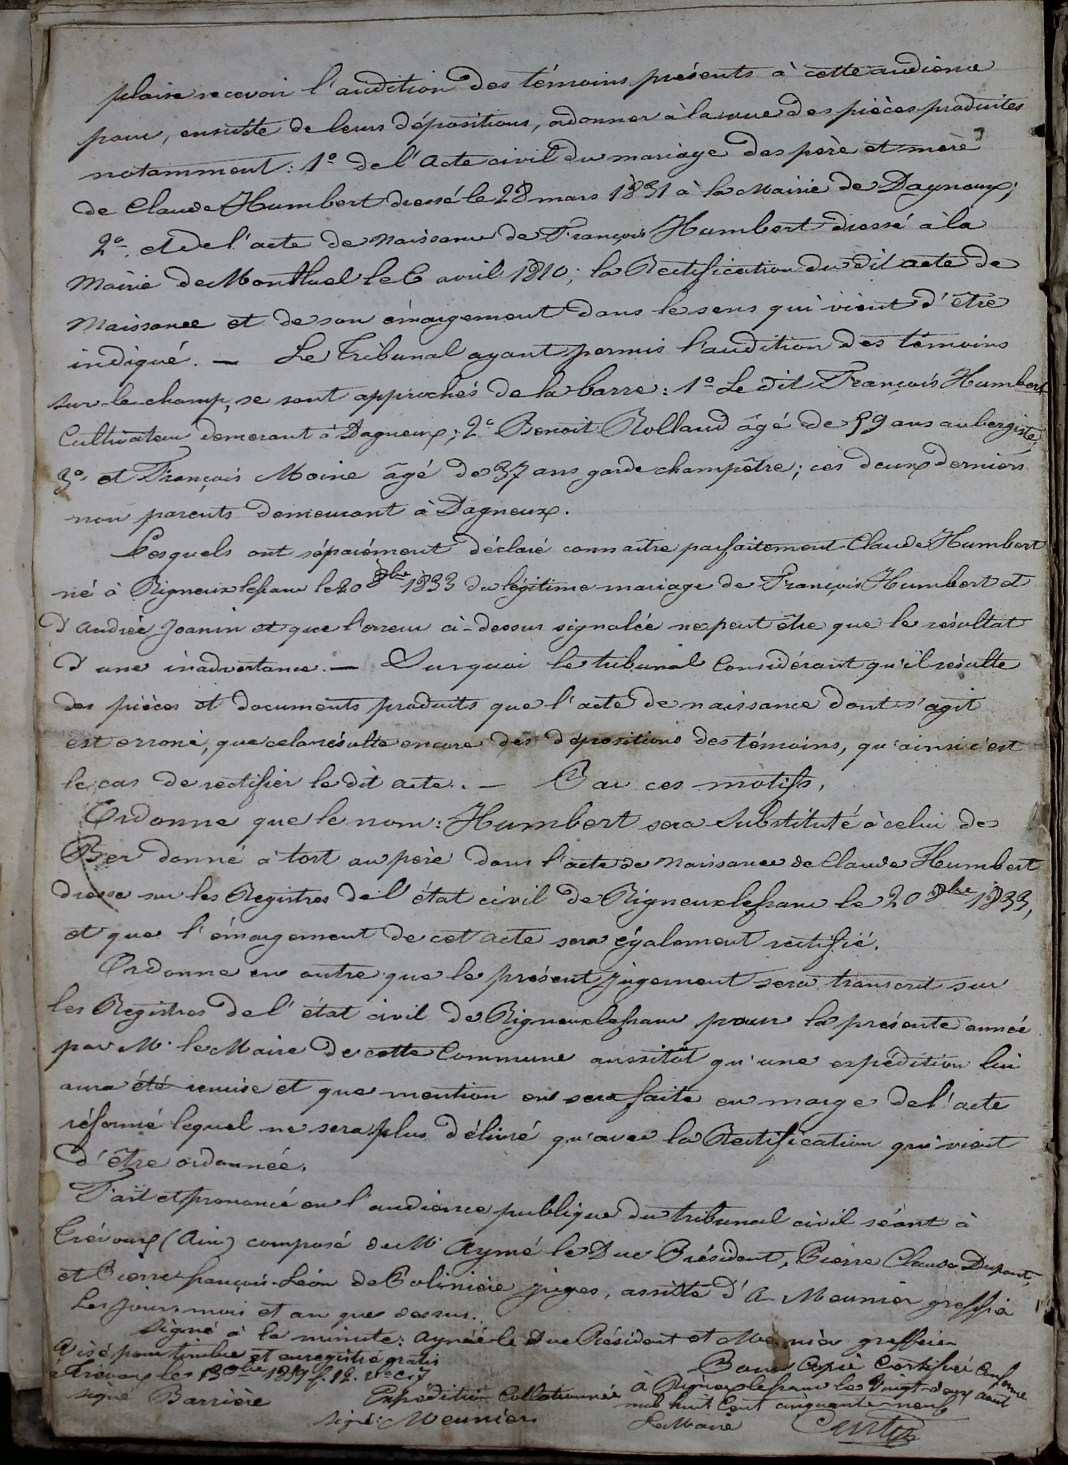 plaise recevoir l'audition des témoins présents à cette audience
pour, ensuite de leurs dépositions, ordonner à la vue des pièces produites
notamment : 1º de l'acte civil du mariage des père et mère
de Claude Humbert dressé le 28 mars 1831 à la Mairie de Dagneux;
2º et de l'acte de naissance de François Humbert dressé à la
Mairie de Montluel le 6 avril 1810; la Rectification du dit acte de
Naissance et de son émargement dans le sens qui vient d'être
indiqué. — Le Tribunal ayant permis l'audition des témoins
sur-le-champ, se sont approchés de la barre : 1º Le dit François Humbert
Cultivateur demeurant à Dagneux; 2º Benoit Rolland âgé de 59 ans aubergiste,
3º et François Moine âgé de 37 ans garde champêtre; ces deux derniers
non parents demeurant à Dagneux.
Lesquels ont séparément déclaré connaître parfaitement Claude Humbert
né à Rigneux lefranc le 20 8bre 1833 du légitime mariage de François Humbert et
d'Andrée Joanin et que l'erreur ci-dessus signalée ne peut être que le résultat
d'une inadvertance. — Sur quoi le tribunal Considérant qu'il résulte
des pièces et documents produits que l'acte de naissance dont s'agit
est erroné, que cela résulte encore des dépositions des témoins, qu'ainsi c'est
le cas de rectifier le dit acte. — Par ces motifs,
Ordonne que le nom : Humbert sera Substitué à celui de
Ber donné à tort au père dans l'acte de Naissance de Claude Humbert
dressé sur les Registres de l'état civil de Rigneux lefranc le 20 8bre 1833,
et que l'émargement de cet acte sera également rectifié.
Ordonne en outre que le présent jugement sera transcrit sur
les Registres de l'état civil de Rigneux lefranc pour la présente année
par Mr le Maire de cette Commune aussitôt qu'une expédition lui
aura été remise et que mention en sera faite en marge de l'acte
réformé lequel ne sera plus délivré qu'avec la Rectification qui vient
d'être ordonnée.
Fait et prononcé en l'audience publique du tribunal civil séant à
Trévoux (Ain) composé de Mr Aymé le Duc Président, Pierre Claude Dupont,
et Pierre françois Léon de Polinière juges, assisté d'A Meunier greffier
Les jours mois et an que dessus.
Signé à la minute : Aymé le Duc Président et Meunier greffier
Visé pour timbre et enregistré gratis
Trévoux le
signé Barrière
Expédition Collationnée
signé : Meunier
Pour Copie Certifiée Conforme
à Rigneux lefranc le Vingt-deux août
mil huit Cent cinquante neuf
Le Maire